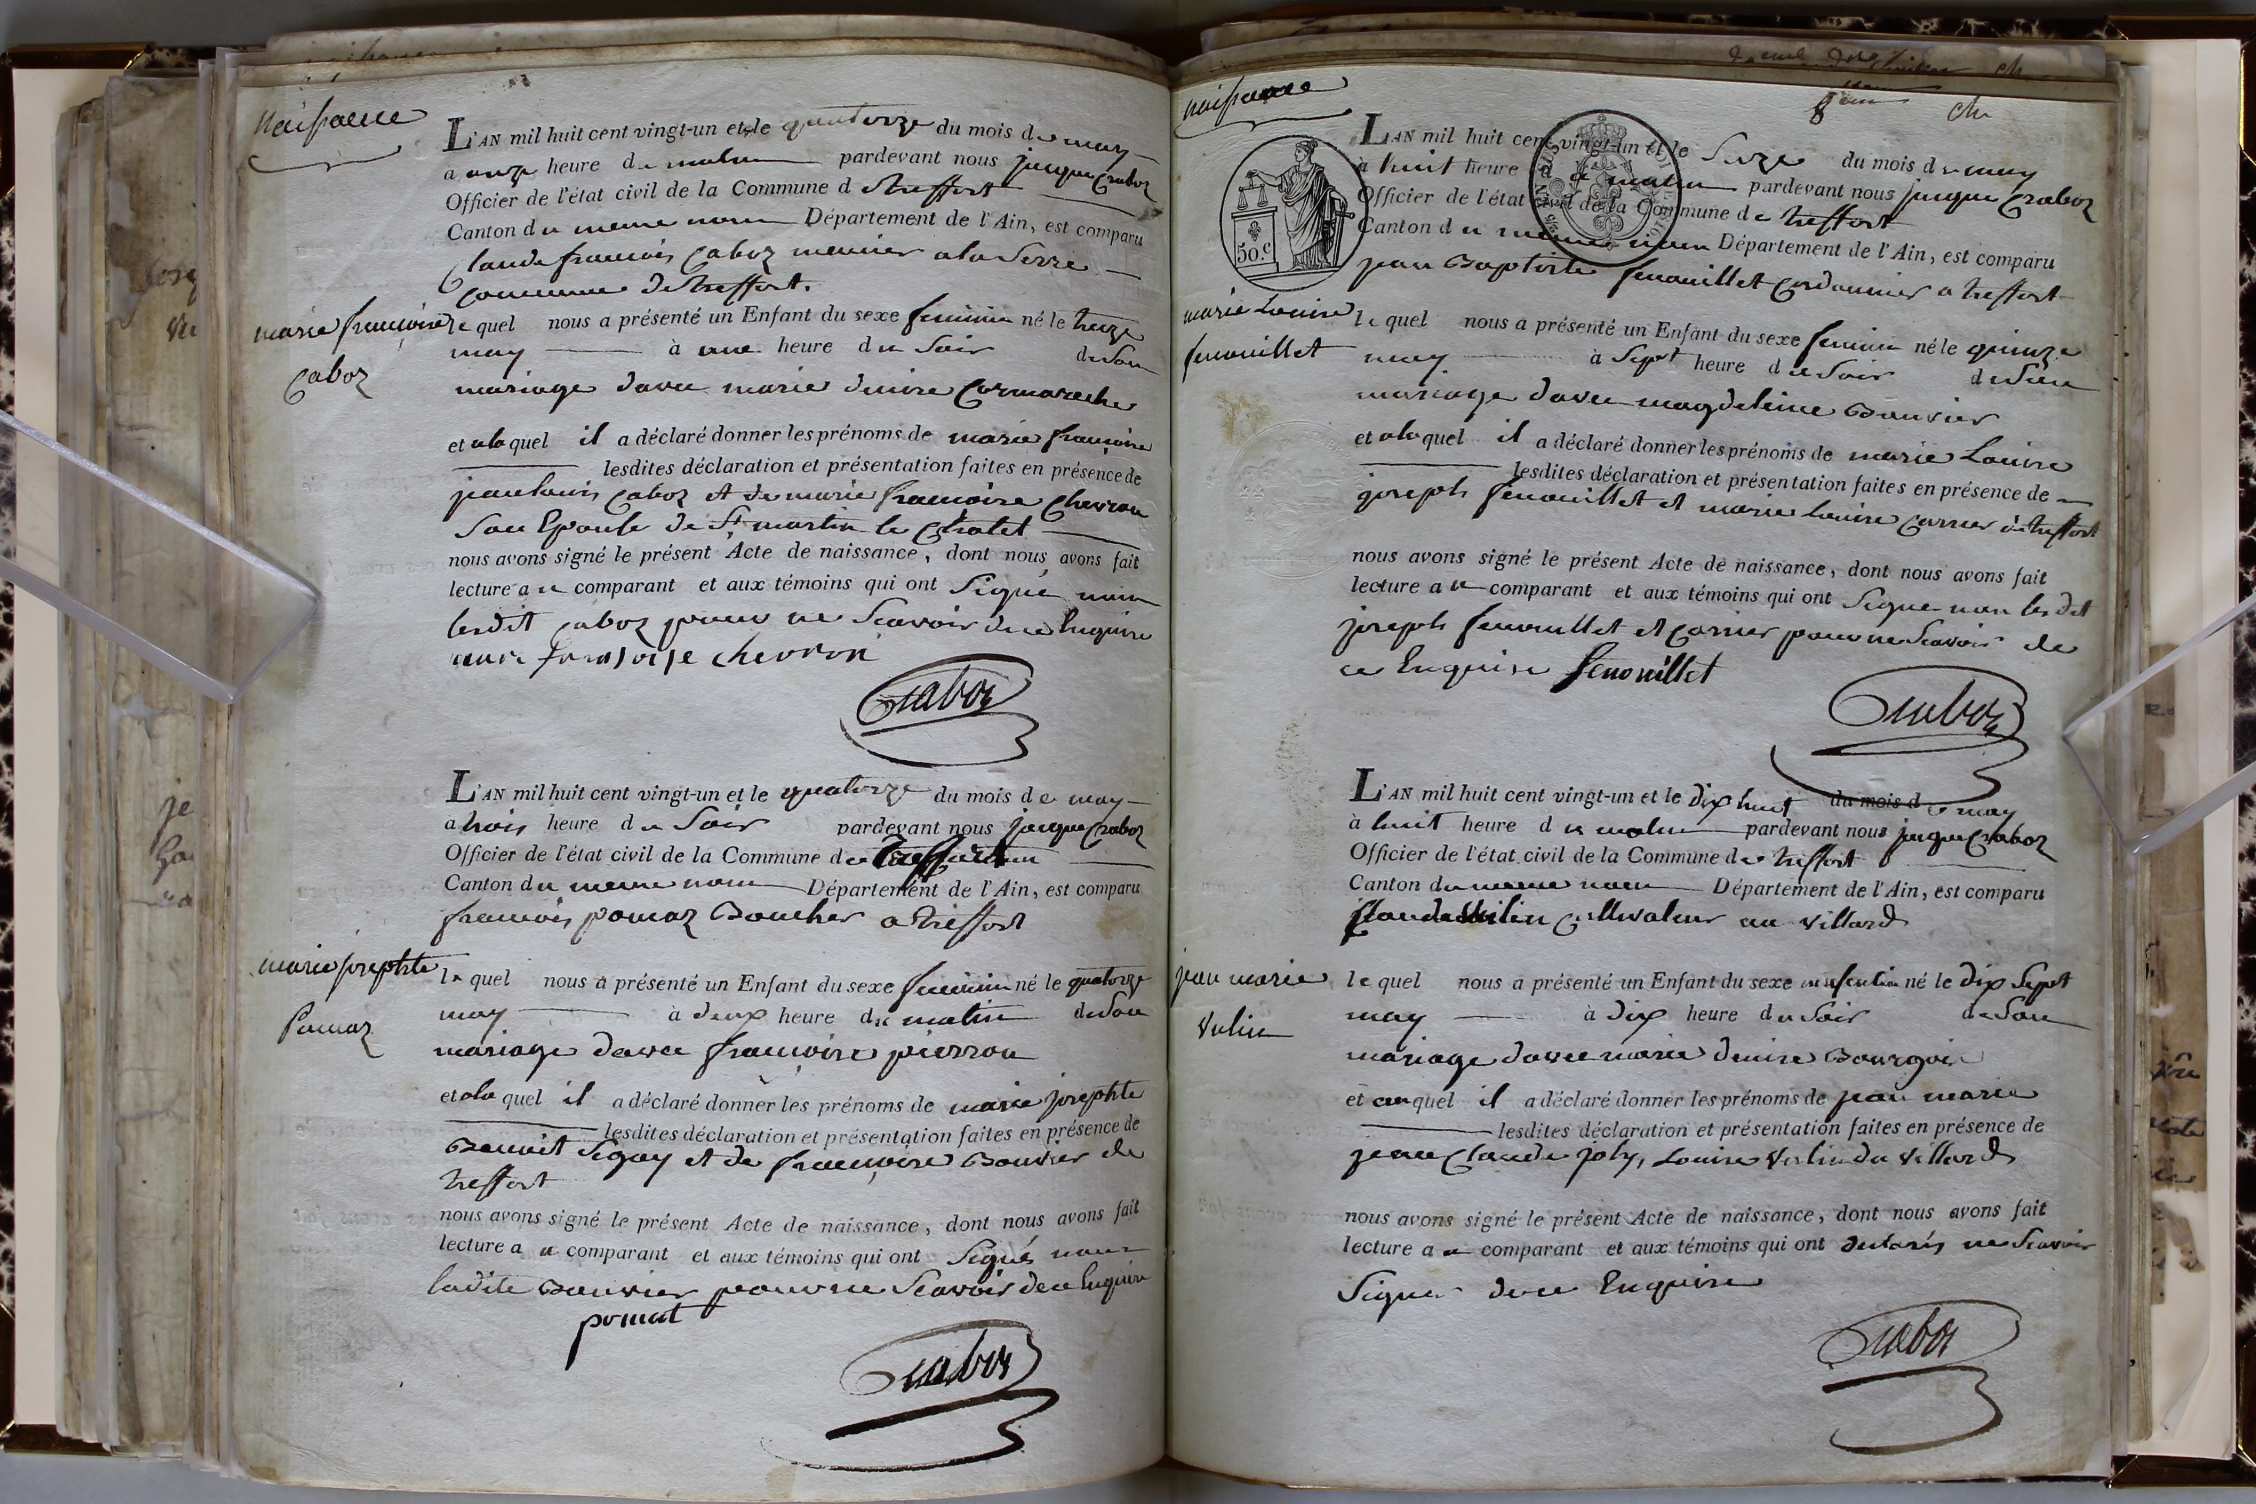 Naissance
L'AN mil huit cent vingt-un et le quatorze du mois de may
a onze heure du matin pardevant nous jacque Craboz
Officier de l'état civil de la Commune d treffort
Canton du meme nom Département de l'Ain, est comparu
Claude francois Caboz meunier a la Serre
commune de treffort.
marie françoise
Caboz
le quel nous a présenté un Enfant du sexe feminin né le treize
may à une heure du Soir de Son
mariage d'avec marie denise Cormareche
et ala quel il a déclaré donner les prénoms de marie francoise
lesdites déclaration et présentation faites en présence de
jean louis Caboz et de marie francoise Chevron
Son Epouse de St martin le Chatel
nous avons signé le présent Acte de naissance, dont nous avons fait
lecture au comparant et aux témoins qui ont Signé non
lesdit Caboz pour ne Scavoir de ce Enquire
francoise chevron
Craboz
L'AN mil huit cent vingt-un et le quatorze du mois de may
a trois heure du Soir pardevant nous jacque Craboz
Officier de l'état civil de la Commune de Treffort
Canton du meme nom Département de l'Ain, est comparu
francois pomaz Boucher a treffort
marie josephte
Pomaz
le quel nous a présenté un Enfant du sexe feminin né le quatorze
may à deux heure du matin de Son
mariage d'avec françoise pierron
et ala quel il a déclaré donner les prénoms de marie josephte
lesdites déclaration et présentation faites en présence de
Benoit Sigay et de françoise Bouvier de
treffort
nous avons signé le présent Acte de naissance, dont nous avons fait
lecture au comparant et aux témoins qui ont Signés non
ladite Bouvier pour ne Scavoir de ce Enquire
pomat
Craboz
Naissance
50.c
L'AN mil huit cent vingt-un et le Seize du mois de may
à huit heure du matin pardevant nous jacque Craboz
Officier de l'état civil de la Commune de treffort
Canton du meme nom Département de l'Ain, est comparu
jean Baptiste fenouillet Cordonnier a treffort
marie Louise
fenouillet
le quel nous a présenté un Enfant du sexe feminin né le quinze
may à Sept heure du Soir de Son
mariage d'avec magdeleine Bouvier
et ala quel il a déclaré donner les prénoms de marie Louise
lesdites déclaration et présentation faites en présence de
joseph fenouillet et marie Louise Carrier de treffort
nous avons signé le présent Acte de naissance, dont nous avons fait
lecture au comparant et aux témoins qui ont Signé non lesdit
joseph fenouillet et Carrier pour ne Scavoir de
ce Enquise fenouillet
Craboz
L'AN mil huit cent vingt-un et le dix huit du mois de may
à huit heure du matin pardevant nous jacque Craboz
Officier de l'état civil de la Commune de treffort
Canton du meme nom Département de l'Ain, est comparu
Claude Vulin Cultivateur au villard
jean marie
Vulin
le quel nous a présenté un Enfant du sexe masculin né le dix Sept
may à dix heure du Soir de Son
mariage d'avec marie denise Bourgois
et auquel il a déclaré donner les prénoms de jean marie
lesdites déclaration et présentation faites en présence de
jean Claude joly, Louise Vulin du villard
nous avons signé le présent Acte de naissance, dont nous avons fait
lecture au comparant et aux témoins qui ont declarés ne Scavoir
Signer de ce Enquise
Craboz